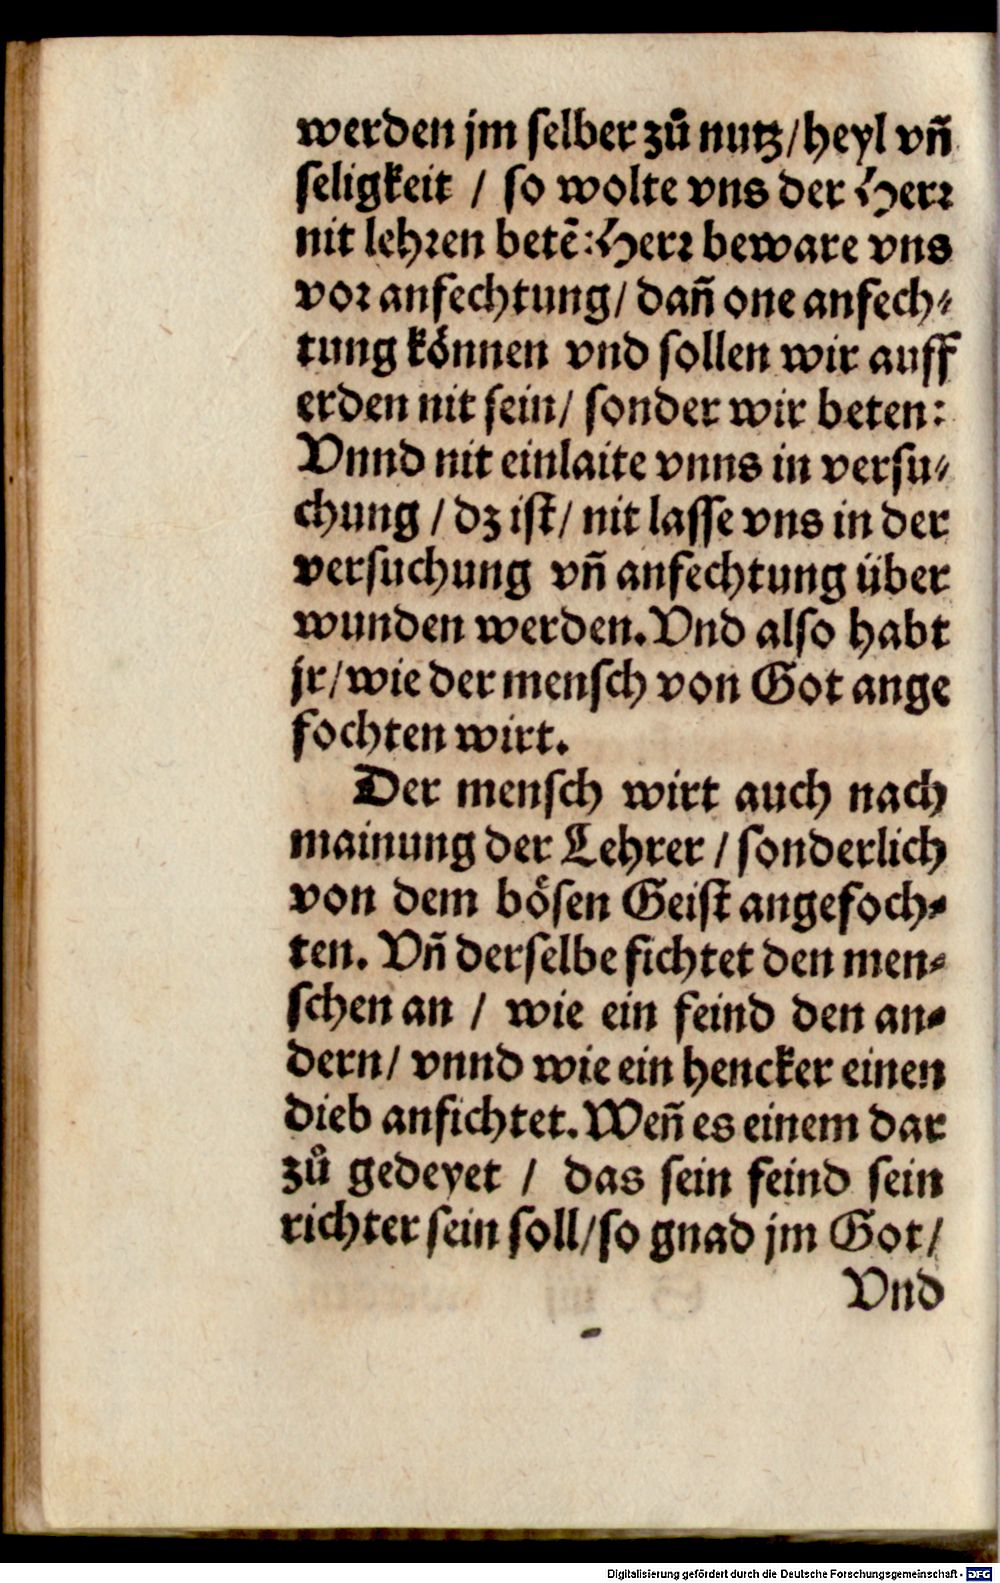 werden jm selber zů nutz/heyl vñ
seligkeit / so wolte vns der Herr
nit lehren betẽ: Herr beware vns
vor anfechtung/ dañ one anfech-
tung können vnd sollen wir auff
erden nit sein/ sonder wir beten:
Vnnd nit einlaite vnns in versu-
chung / dz ist/ nit lasse vns in der
versuchung vñ anfechtung über
wunden werden. Vnd also habt
jr/ wie der mensch von Got ange
fochten wirt.
Der mensch wirt auch nach
mainung der Lehrer / sonderlich
von dem bösen Geist angefoch-
ten. Vñ derselbe fichtet den men-
schen an / wie ein feind den an-
dern/ vnnd wie ein hencker einen
dieb anfichtet. Weñ es einem dar
zů gedeyet / das sein feind sein
richter sein soll/so gnad jm Got/
Vnd
Digitalisierung gefördert durch die Deutsche Forschungsgemeinschaft - DFG